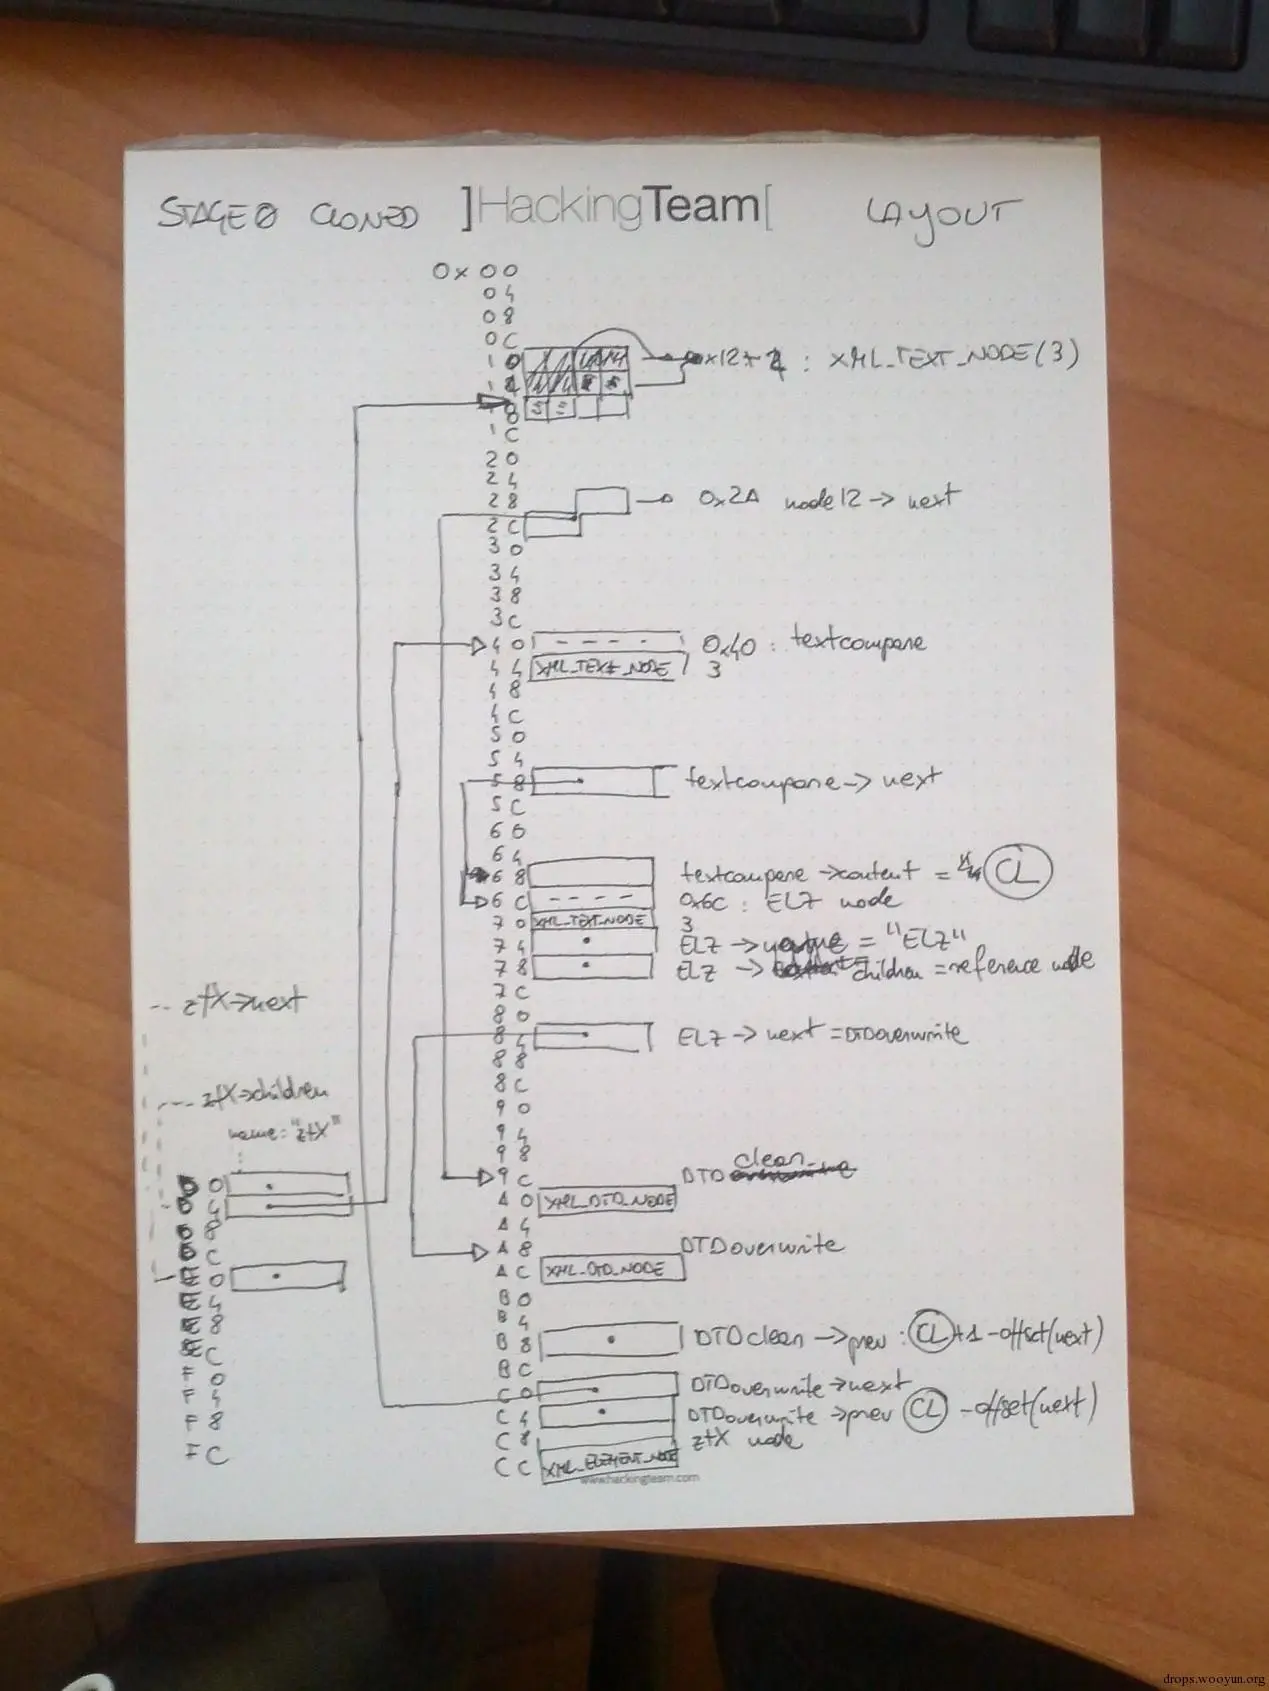 STAGE0 CLONED ]HackingTeam[ LAYOUT
0x00
04
08
0C
10 0x12 : XML_TEXT_NODE(3)
14
18
1C
20
24
28 0x2A node12 -> next
2C
30
34
38
3C
40 0x40 : textcompare
44 XML_TEXT_NODE 3
48
4C
50
54
58 textcompare -> next
5C
60
64
68 textcompare -> content = CL
6C 0x6C : EL7 node
70 XML_TEXT_NODE 3
74 EL7 -> = "EL7"
78 EL7 -> children = reference node
7C
80
84 EL7 -> next = DTDoverwrite
88
8C
90
94
98
9C DTD clean
A0 XML_DTD_NODE
A4
A8 DTDoverwrite
AC XML_DTD_NODE
B0
B4
B8 DTDclean -> prev : CL +1 -offset(next)
BC
C0 DTDoverwrite -> next
C4 DTDoverwrite -> prev CL -offset(next)
C8 ztX node
CC XML_ELEMENT_NODE
www.hackingteam.com
ztX->next
ztX->children
name: "ztX"
D0
D4
D8
DC
E0
E4
E8
EC
F0
F4
F8
FC
drops.wooyun.org